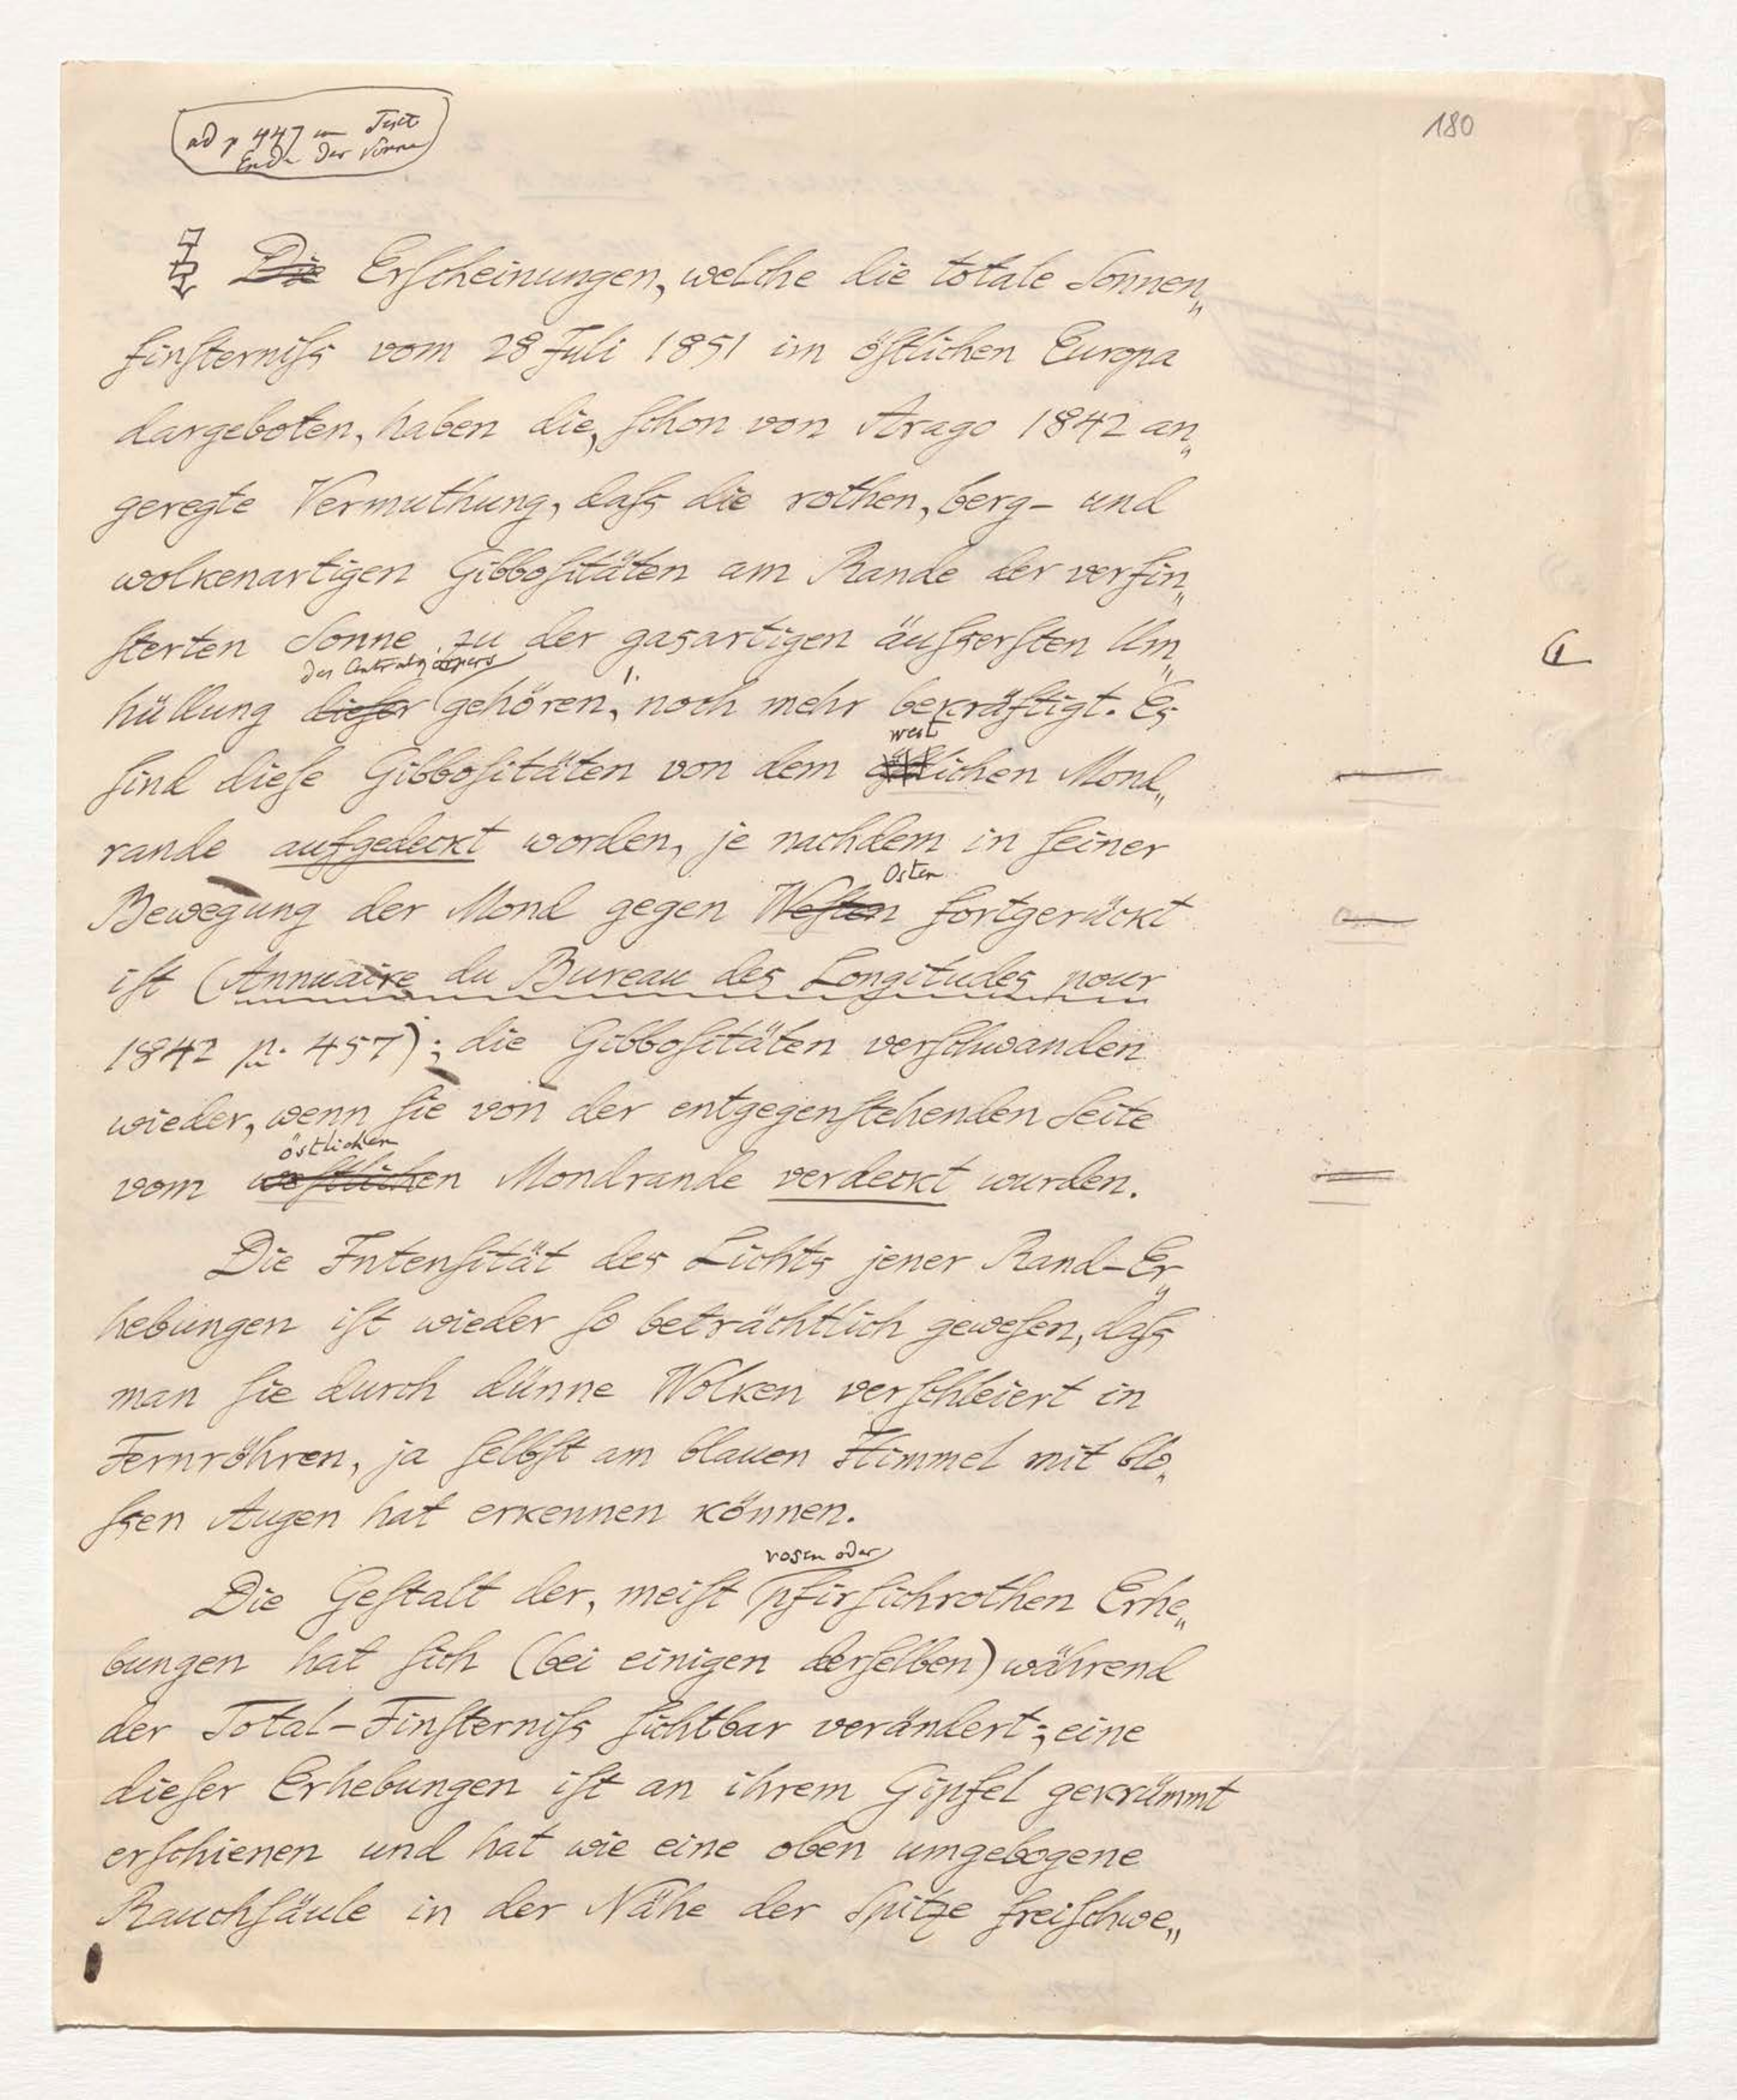 ad p 447 im Text
Ende der Sonne
180
Die Erscheinungen, welche die totale Sonnen„
finsterniſs vom 28 Juli 1851 im öſtlichen Europa
dargeboten, haben die, ſchon von Arago 1842 an„
geregte Vermuthung, daſs die rothen, berg- und
wolkenartigen Gibboſitäten am Rande der verfin„
ſterten Sonne zu der gasartigen äuſserſten Um„
des Centralkörpers
hüllung dieſer gehören, noch mehr bekräftigt. Es
west
ſind dieſe Gibboſitäten von dem öſtlichen Mond„
rande aufgedeckt worden, je nachdem in ſeiner
Osten
Bewegung der Mond gegen Weſten fortgerückt
iſt (Annuaire du Bureau des Longitudes pour
1842 p. 457); die Gibboſitäten verſchwanden
wieder, wenn ſie von der entgegenſtehenden Seite
östlichen
vom weſtlichen Mondrande verdeckt wurden.
Die Intenſität des Lichts jener Rand-Er„
hebungen iſt wieder ſo beträchtlich geweſen, daſs
man ſie durch dünne Wolken verſchleiert in
Fernröhren, ja ſelbſt am blauen Himmel mit blo„
ſsen Augen hat erkennen können.
rosen oder
Die Geſtalt der, meiſt pfirſichrothen Erhe„
bungen hat ſich (bei einigen derſelben) während
der Total-Finſterniſs ſichtbar verändert; eine
dieſer Erhebungen iſt an ihrem Gipfel gekrümmt
erſchienen und hat wie eine oben umgebogene
Rauchſäule in der Nähe der Spitze freiſchwe„